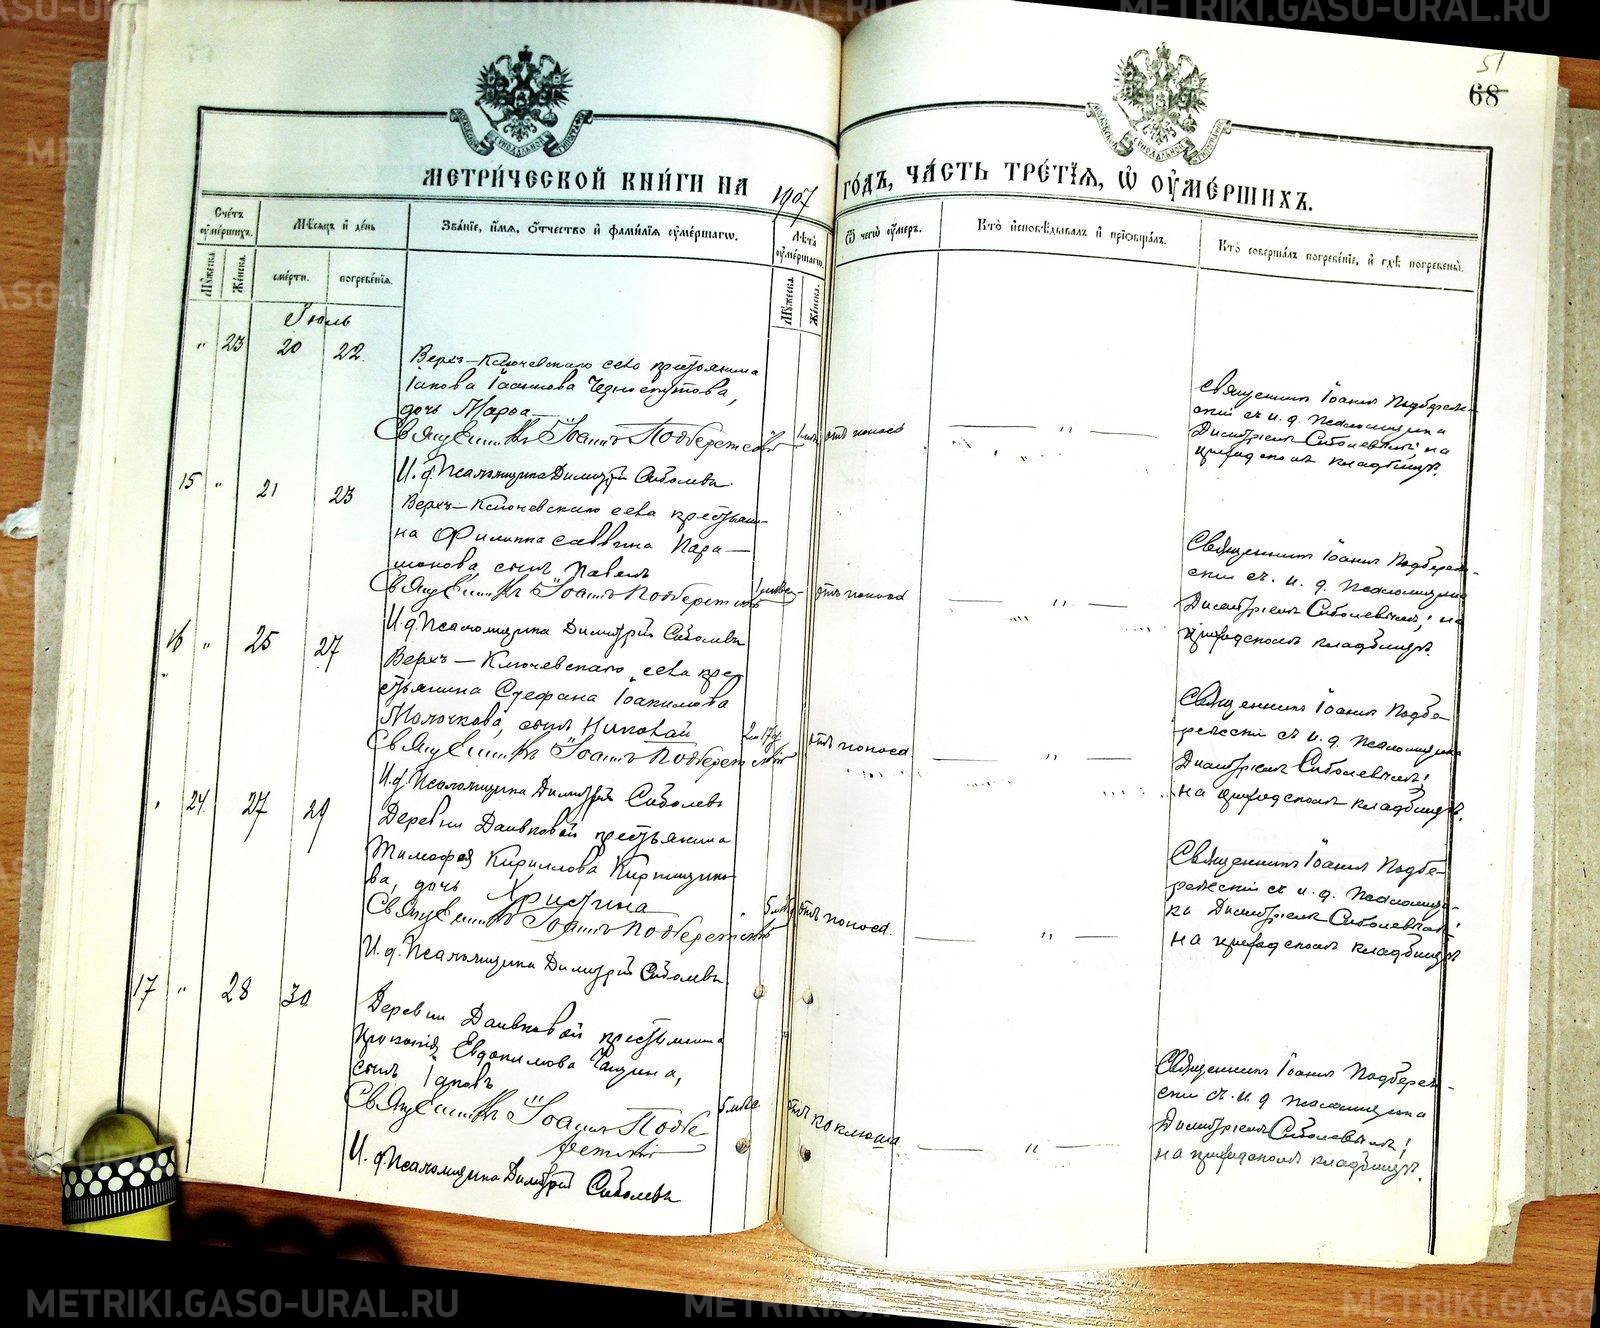 METRIKI.GASO-URAL.RU
51
68
МЕТРИ́ЧЕСКОЙ КНИ́ГИ НА 1907 ГО́ДЪ, ЧА́СТЬ ТРЕ́ТІѦ, Ѡ ОУ҆МЕ́РШИХЪ.
Сче́тъ оу҆ме́ршихъ.
Мѣ́сѧцъ и҆ де́нь
Зва́нїе, и҆́мѧ, ѻ҆́тчество и҆ фамилїѧ оу҆ме́ршагѡ.
Лѣ́та оу҆ме́ршагѡ.
Ѿ чегѡ̀ оу҆́меръ.
Кто̀ и҆сповѣ́дывалъ и҆ прїѡбща́лъ.
Кто̀ соверша́лъ погребе́нїе, и҆ гдѣ̀ погребены̀.
Мꙋ́жеска.
Же́нска.
сме́рти.
погребе́нїѧ.
Мꙋ́жеска.
Же́нска.
Іюль
" 23 20 22.
Верхъ-Ключевскаго села крестьянина
Іакова Іоаннова Черноскутова,
дочь Марѳа
Священникъ Іоаннъ Подбережскій
И. д. Псаломщика Димитрій Соболевъ
отъ поноса
— " —
Священникъ Іоаннъ Подбереж-
скій съ и. д. псаломщика
Димитріемъ Соболевымъ; на
приходскомъ кладбищѣ.
15 " 21 23
Верхъ-Ключевскаго села крестьяни-
на Филиппа Саввина Пара-
монова, сынъ Павелъ
Священникъ Іоаннъ Подбережскій
И. д. Псаломщика Димитрій Соболевъ
отъ поноса
— " —
Священникъ Іоаннъ Подбереж-
скій съ и. д. псаломщика
Димитріемъ Соболевымъ; на
приходскомъ кладбищѣ.
16 " 25 27
Верхъ-Ключевскаго села кре-
стьянина Стефана Іоакимова
Молочкова, сынъ Николай
Священникъ Іоаннъ Подбережскій
И. д. Псаломщика Димитрій Соболевъ
отъ поноса
— " —
Священникъ Іоаннъ Подбе-
режскій съ и. д. псаломщика
Димитріемъ Соболевымъ;
на приходскомъ кладбищѣ.
" 24. 27 29
Деревни Даивковой крестьянина
Тимофея Кириллова Кирпищико-
ва, дочь Христина
Священникъ Іоаннъ Подбережскій
И. д. Псаломщика Димитрій Соболевъ
" 5 мѣс
отъ поноса.
— " —
Священникъ Іоаннъ Подбе-
режскій съ и. д. псаломщи-
ка Димитріемъ Соболевымъ;
на приходскомъ кладбищѣ
17 " 28 30
Деревни Даивковой крестьянина
Прокопія Евдокимова Чащина,
сынъ Іаковъ
Священникъ Іоаннъ Подбе
режскій
И. д. Псаломщика Димитрій Соболевъ
5 мѣс
отъ коклюша
— " —
Священникъ Іоаннъ Подбереж-
скій съ и. д. псаломщика
Димитріемъ Соболевымъ;
на приходскомъ кладбищѣ.
METRIKI.GASO-URAL.RU